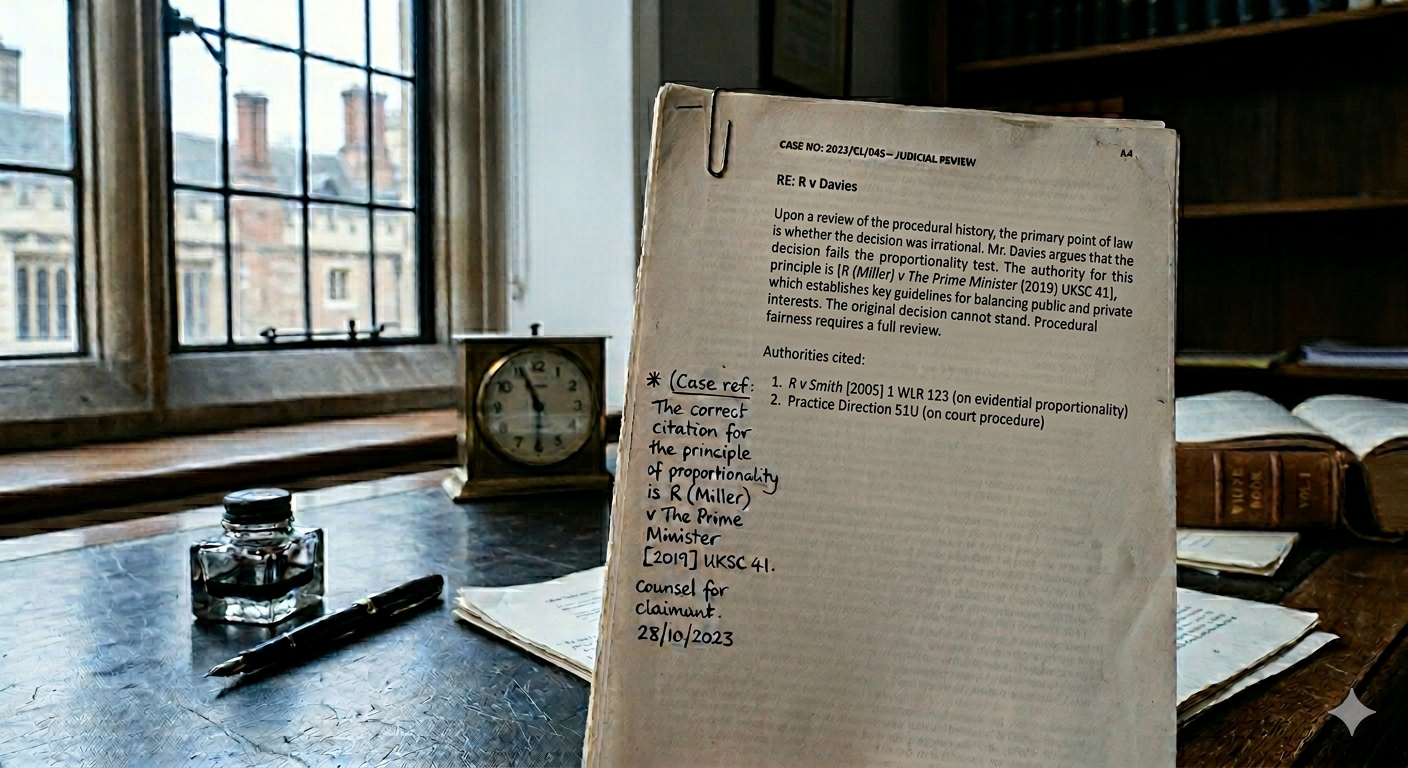 CASE NO: 2023/CL/04S—JUDICIAL REVIEW
A4
RE: R v Davies
Upon a review of the procedural history, the primary point of law
is whether the decision was irrational. Mr. Davies argues that the
decision fails the proportionality test. The authority for this
principle is [R (Miller) v The Prime Minister (2019) UKSC 41],
which establishes key guidelines for balancing public and private
interests. The original decision cannot stand. Procedural
fairness requires a full review.
Authorities cited:
1. R v Smith [2005] 1 WLR 123 (on evidential proportionality)
2. Practice Direction 51U (on court procedure)
* (Case ref:
The correct
citation for
the principle
of proportionality
is R (Miller)
v The Prime
Minister
[2019] UKSC 41.
counsel for
claimant.
28/10/2023
12
1
2
3
6
7
9
10
BOOK
VOL-I